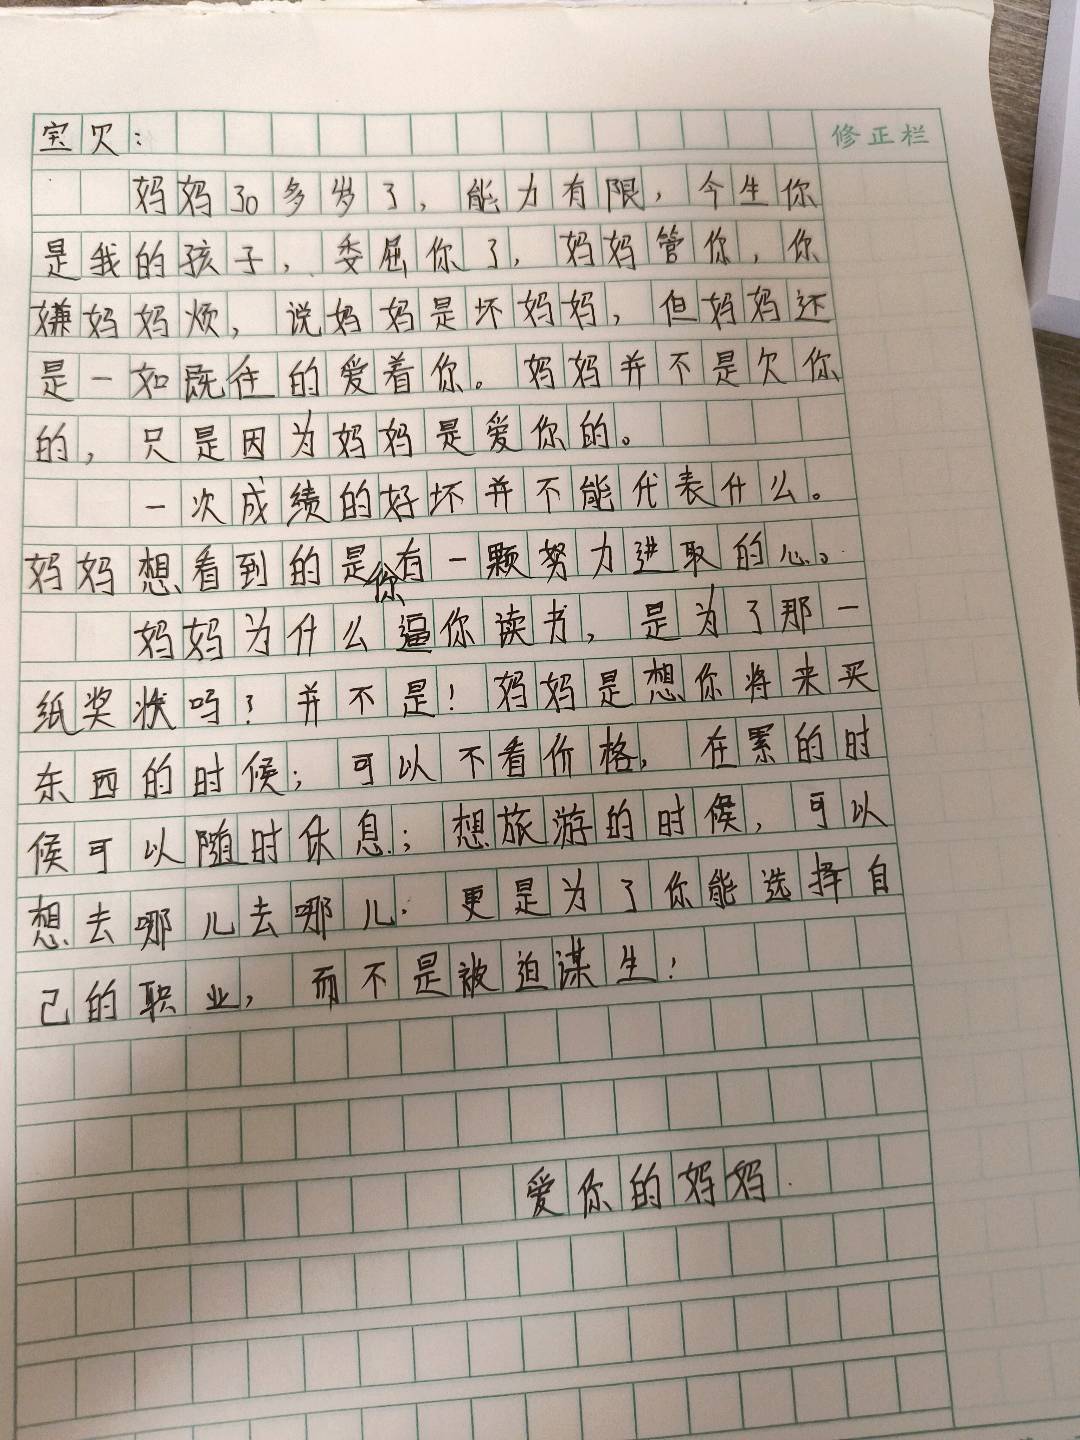 宝欠：
修正栏
妈妈30多岁了，能力有限，今生你
是我的孩子，委屈你了，妈妈管你，你
嫌妈妈烦，说妈妈是坏妈妈，但妈妈还
是一如既往的爱着你。妈妈并不是欠你
的，只是因为妈妈是爱你的。
一次成绩的好坏并不能代表什么。
妈妈想看到的是你有一颗努力进取的心。
妈妈为什么逼你读书，是为了那一
纸奖状吗？并不是！妈妈是想你将来买
东西的时候；可以不看价格，在累的时
候可以随时休息；想旅游的时候，可以
想去哪儿去哪儿.更是为了你能选择自
己的职业，而不是被迫谋生！
爱你的妈妈.